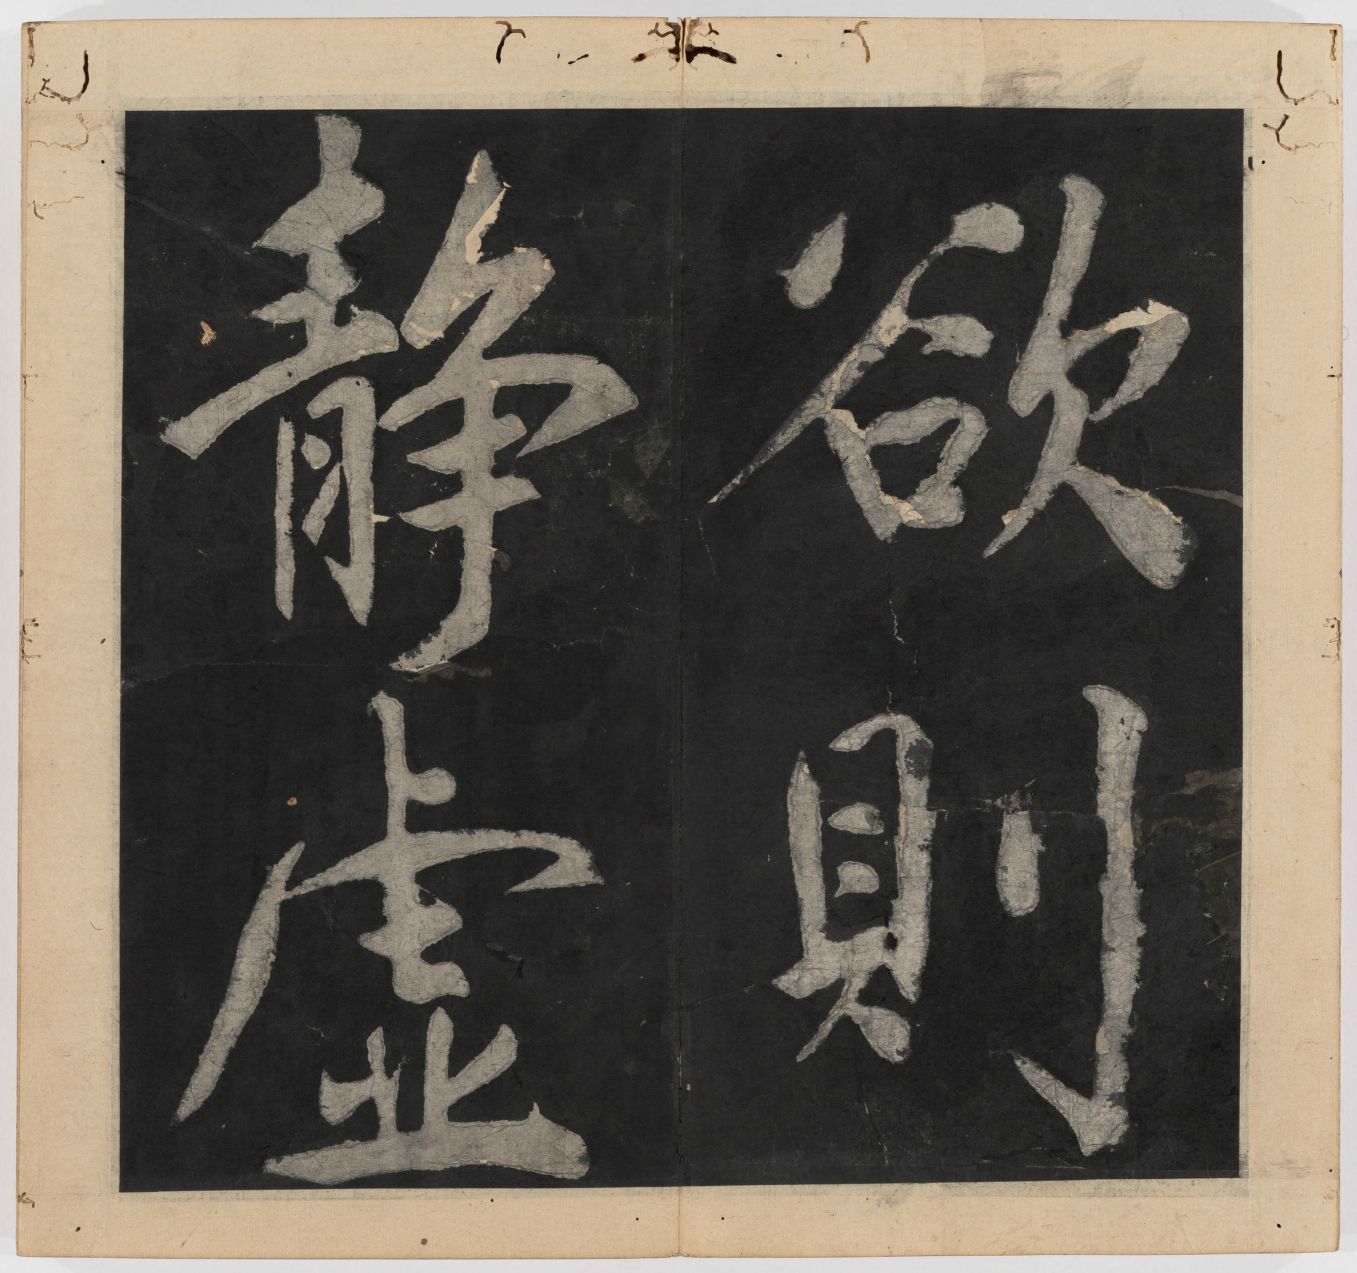 欲則
靜虛